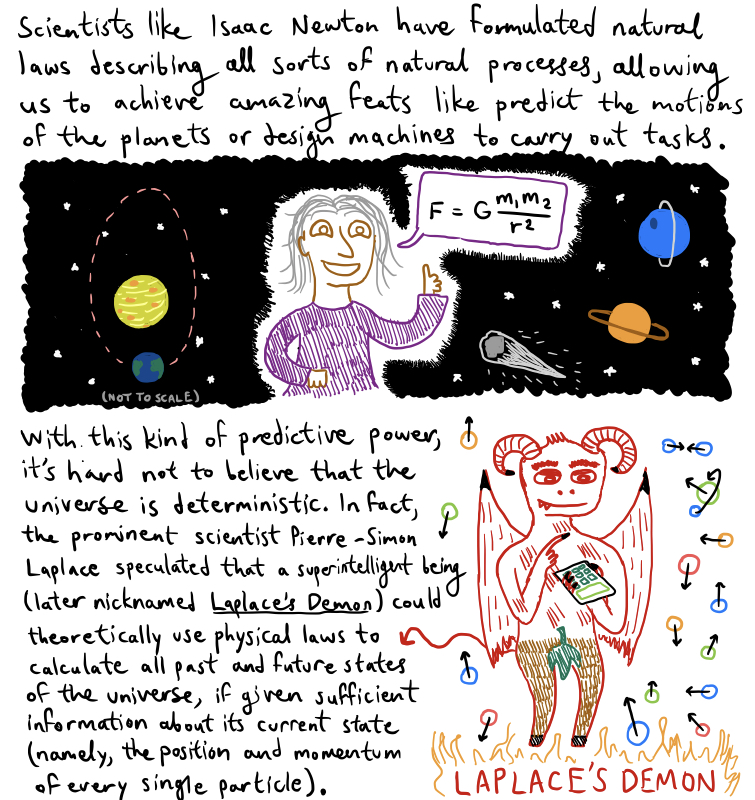 Scientists like Isaac Newton have formulated natural
laws describing all sorts of natural processes, allowing
us to achieve amazing feats like predict the motions
of the planets or design machines to carry out tasks.
F = G m₁m₂/r²
(NOT TO SCALE)
With this kind of predictive power,
it's hard not to believe that the
universe is deterministic. In fact,
the prominent scientist Pierre-Simon
Laplace speculated that a superintelligent being
(later nicknamed Laplace's Demon) could
theoretically use physical laws to
calculate all past and future states
of the universe, if given sufficient
information about its current state
(namely, the position and momentum
of every single particle).
LAPLACE'S DEMON